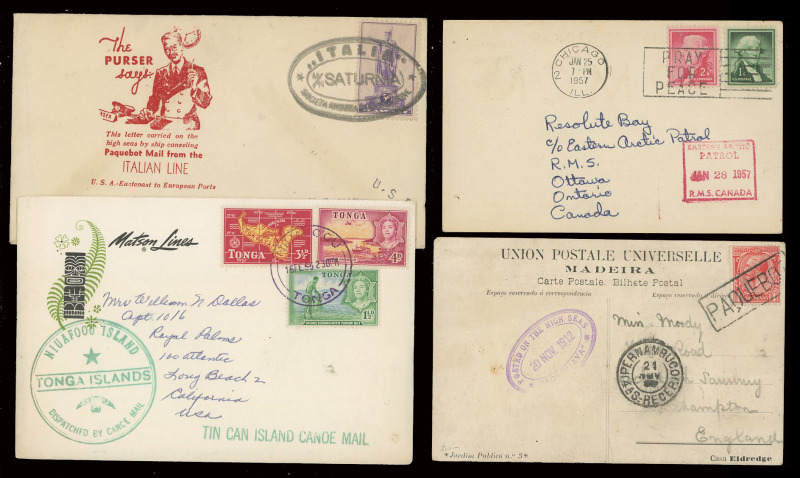 The
PURSER
says:
This letter carried on the
high seas by ship canceling
Paquebot Mail from the
ITALIAN LINE
U. S. A.-Eastcoast to European Ports
"ITALIA"
SATURNIA
U.S.
N CHICAGO
JAN 25
7 PM
1957
ILL.
PRAY
FOR
PEACE
2¢
1¢
Resolute Bay
c/o Eastern Arctic Patrol
R.M.S.
Ottawa
Ontario
Canada
EASTERN ARCTIC
PATROL
JAN 28 1957
R.M.S. CANADA
Matson Lines
TONGA
3½D
TONGA
4D
TONGA
1½D
TONGA
Mrs William N Dallas
Apt 1016
Royal Palms
100 Atlantic
Long Beach 2
California
USA
NIUAFOOU ISLAND
TONGA ISLANDS
DISPATCHED BY CANOE MAIL
TIN CAN ISLAND CANOE MAIL
UNION POSTALE UNIVERSELLE
MADEIRA
Carte Postale. Bilhete Postal
Espaço reservado á correspondencia
Espaço reservado á
PAQUEBO
POSTED ON THE HIGH SEAS
20 NOV. 1912
PERNAMBUCO
21
NOV
Miss Moody
Road
England
"Jardim Publico n.º 3"
Casa Eldredge